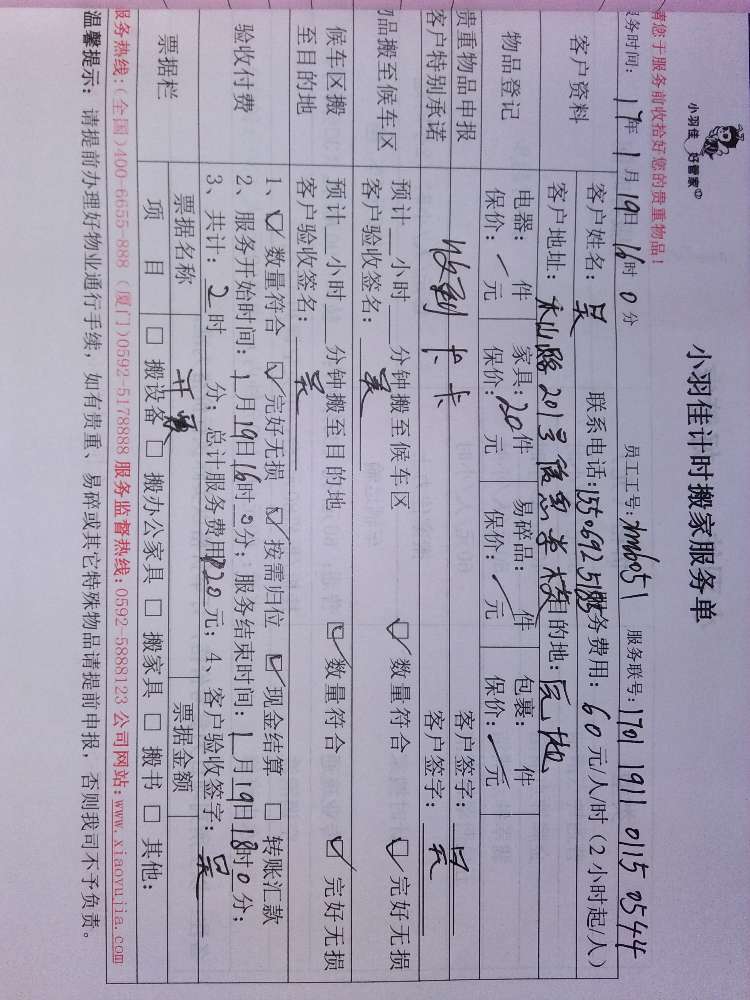 小羽佳 好管家
小羽佳计时搬家服务单
请您于服务前收拾好您的贵重物品！
服务时间：17年1月19日16时0分 员工工号：xm6051 服务联号：1701 1911 0115 0544
客户资料
客户姓名：吴 联系电话： 服务费用：60元/人/时（2小时起/人）
客户地址： 201号信息学校 目的地：原地
物品登记
电器： 件 家具：20件 易碎品： 件 包裹： 件
保价：/元 保价： 元 保价：/元 保价：/元
贵重物品申报 收到 客户签字：吴
客户特别承诺 客户签字：无
物品搬至候车区
预计__小时__分钟搬至候车区 ☑数量符合 ☑完好无损
客户验收签名：吴
候车区搬至目的地
预计__小时__分钟搬至目的地 ☑数量符合 ☑完好无损
客户验收签名：吴
验收付费
1、☑数量符合 ☑完好无损 ☑按需归位 ☑现金结算 □转账汇款
2、服务开始时间：1月19日16时0分；服务结束时间：1月19日18时0分；
3、共计：2时__分；总计服务费用：120元；4、客户验收签字：吴
票据栏
票据名称 开票 票据金额
项目 □搬设备 □搬办公家具 □搬家具 □搬书 □其他：
服务热线：(全国)400-6655-888 (厦门)0592-5178888 服务监督热线：0592-5888123 公司网站：www.xiaoyujia.com
温馨提示：请提前办理好物业通行手续，如有贵重、易碎或其它特殊物品请提前申报，否则我司不予负责。